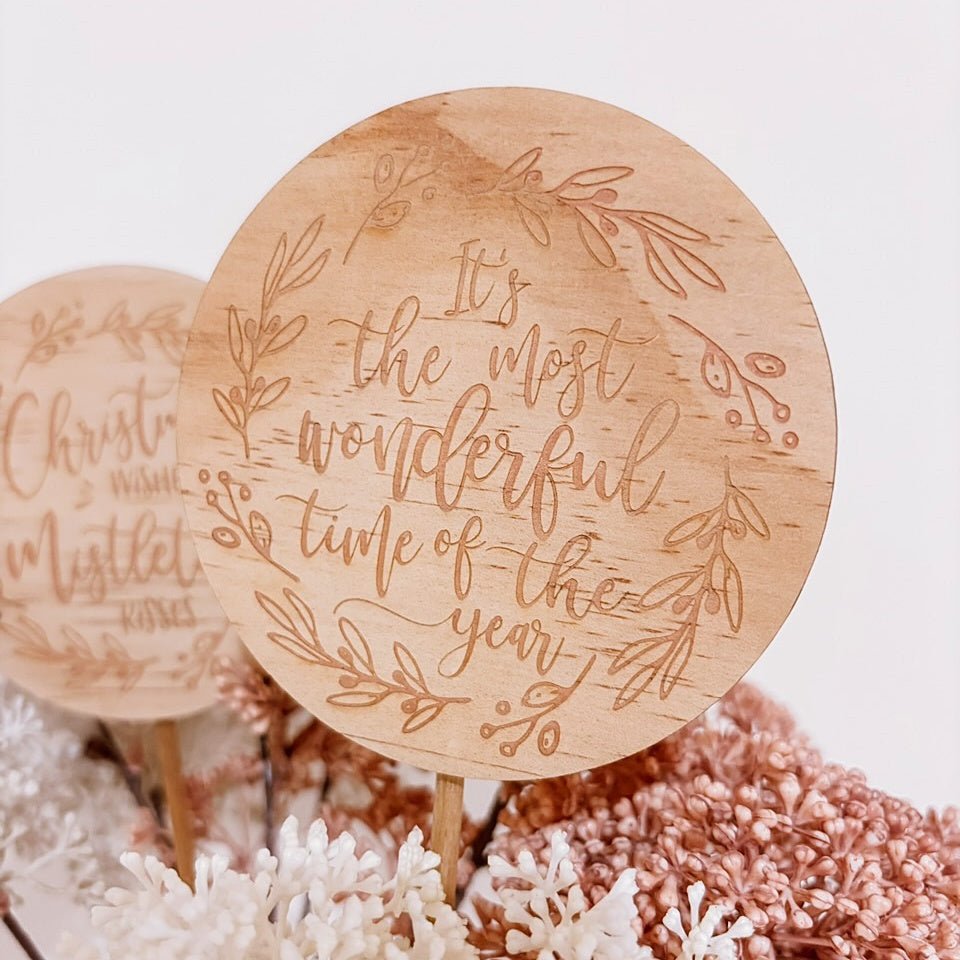 It's
the most
wonderful
time of the
year
Christm
WISHE
Mistlet
KISSES